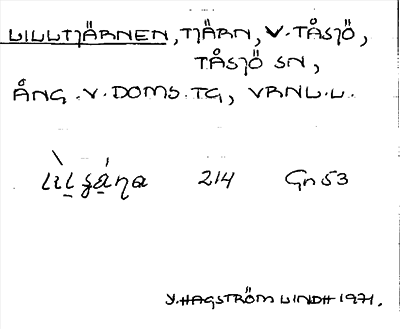 LILLTJÄRNEN, TJÄRN, V. TÅSJÖ,
TÅSJÖ SN,
ÅNG. V. DOMS. TG, VRNL. L.
214 Gn 53
Y. HAGSTRÖM LINDH 1971.